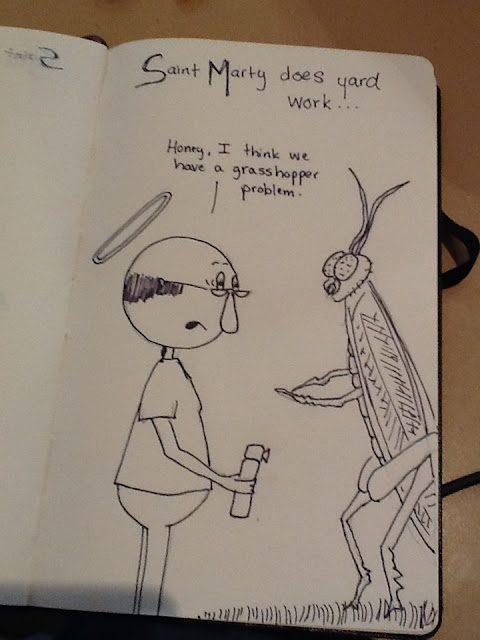 Saint Marty does yard
work...
Honey, I think we
have a grasshopper
problem.